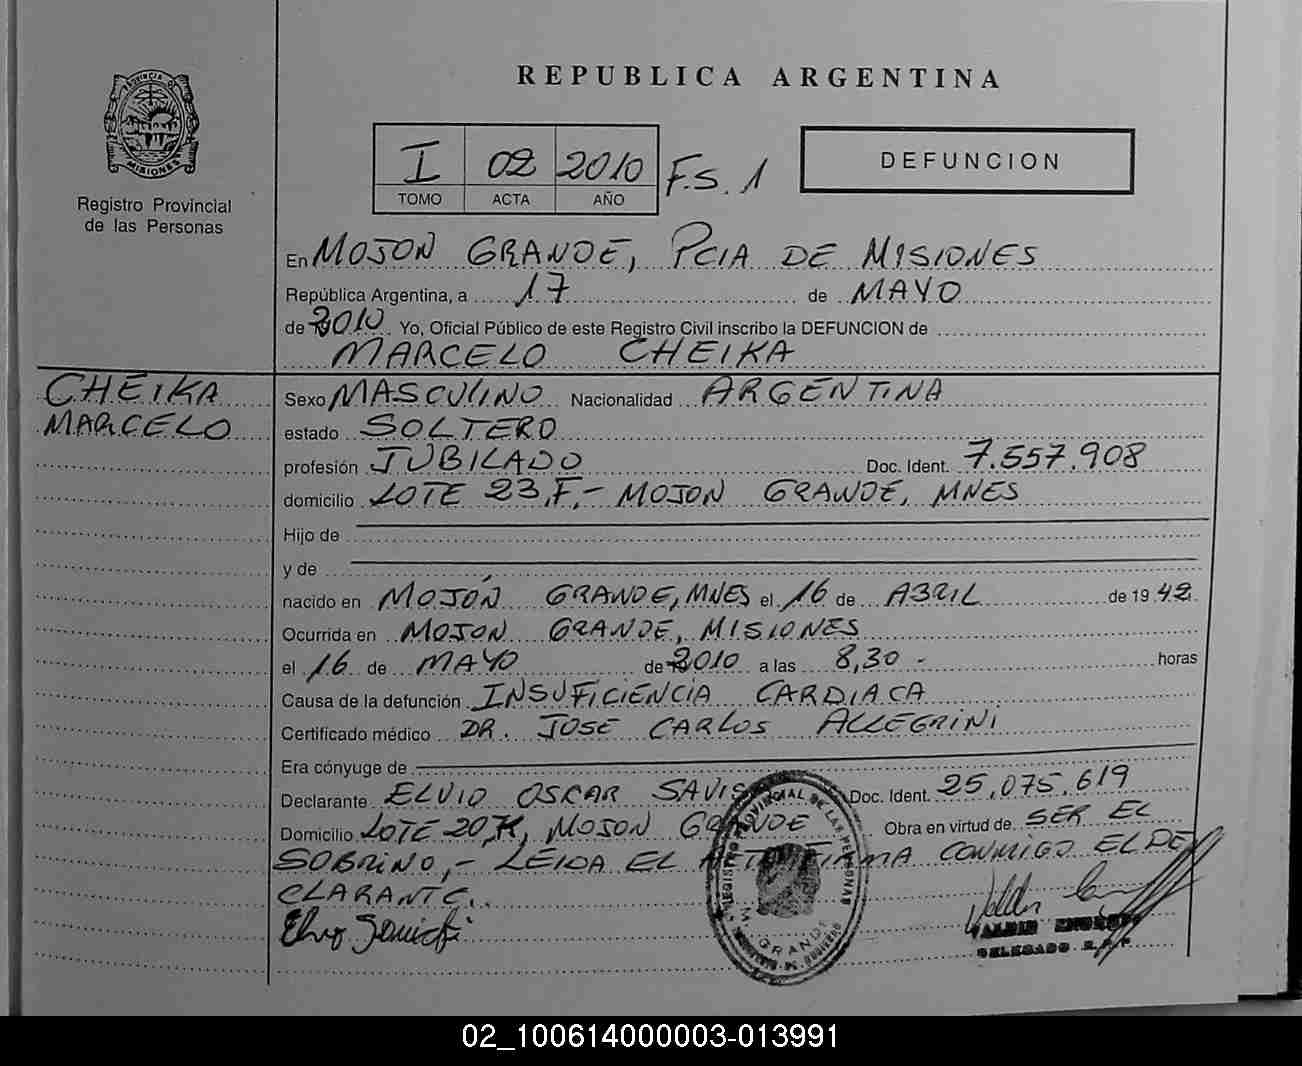 REPUBLICA ARGENTINA
PROVINCIA DE
MISIONES
Registro Provincial
de las Personas
I 02 2010 F.S. 1
TOMO ACTA AÑO
DEFUNCION
En MOJON GRANDE, PCIA DE MISIONES
República Argentina, a 17 de MAYO
de 2010 Yo, Oficial Público de este Registro Civil inscribo la DEFUNCION de
MARCELO CHEIKA
CHEIKA
MARCELO
Sexo MASCULINO Nacionalidad ARGENTINA
estado SOLTERO
profesión JUBILADO Doc. Ident. 7.557.908
domicilio LOTE 23,F,- MOJON GRANDE, MNES
Hijo de
y de
nacido en MOJÓN GRANDE, MNES el 16 de ABRIL de 1942
Ocurrida en MOJON GRANDE, MISIONES
el 16 de MAYO de 2010 a las 8,30 - horas
Causa de la defunción INSUFICIENCIA CARDIACA
Certificado médico DR. JOSE CARLOS ALLEGRINI
Era cónyuge de
Declarante ELVIO OSCAR Doc. Ident. 25,075,619
Domicilio LOTE 20, MOJON GRANDE Obra en virtud de SER EL
SOBRINO,- LEIDA EL ACTA FIRMA CONMIGO EL DE
CLARANTE.
REGISTRO PROVINCIAL DE LAS PERSONAS
GRANDE
DELEGADO R.P.P.
02_100614000003-013991